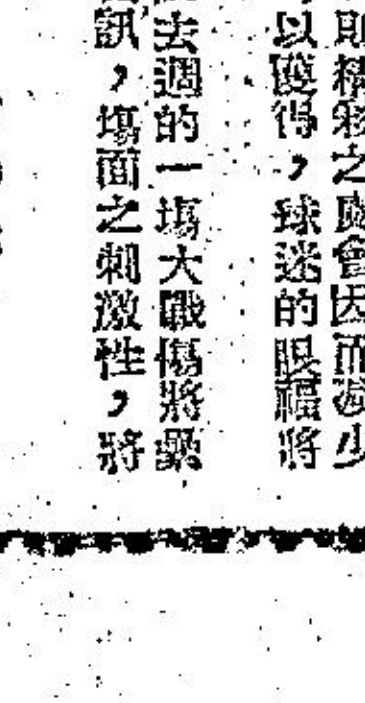 則精彩之戲會因而減少
以獲得，球迷的眼福將
去週的一場大戰傷將纍
訊，場面之刺激性，將